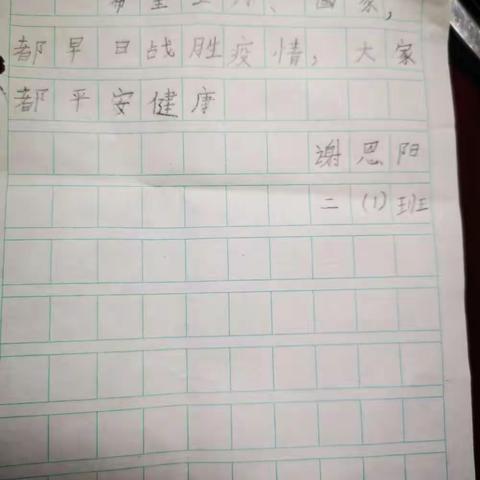 希望 、国家，
都早日战胜疫情，大家
都平安健康
谢思阳
二（1）班